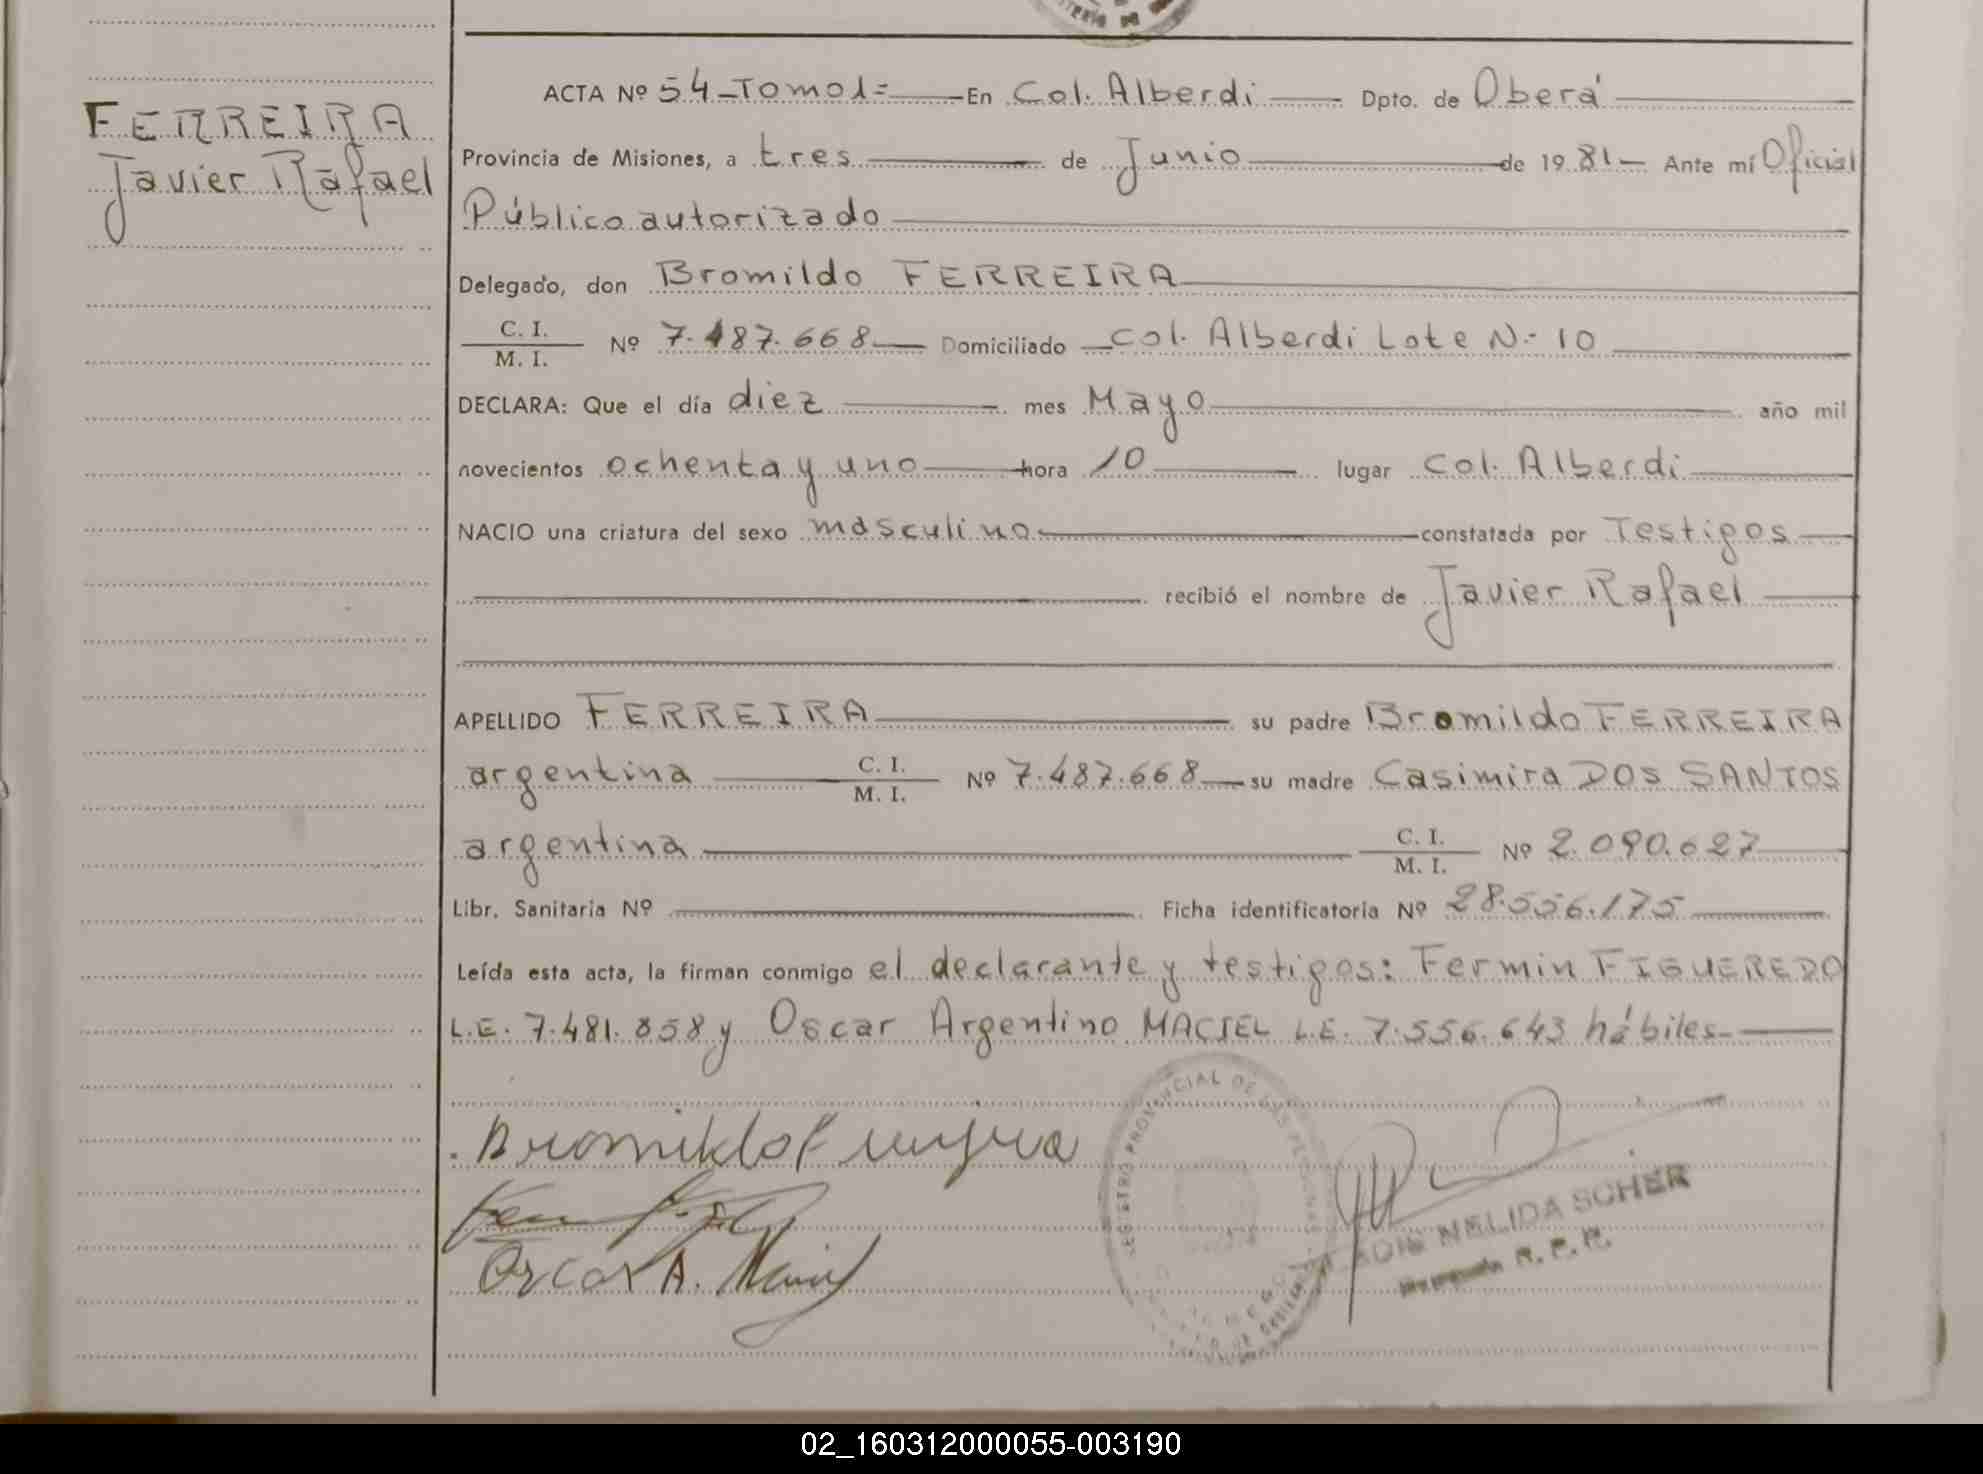 ACTA Nº 54-Tomo 1= En Col. Alberdi Dpto. de Oberá
FERREIRA
Javier Rafael
Provincia de Misiones, a tres de Junio de 1981- Ante mí Oficial
Público autorizado
Delegado, don Bromildo FERREIRA
C. I.
M. I. Nº 7.487.668 Domiciliado Col. Alberdi Lote N.- 10
DECLARA: Que el día diez mes Mayo año mil
novecientos ochenta y uno hora 10 lugar Col. Alberdi
NACIO una criatura del sexo masculino constatada por Testigos
recibió el nombre de Javier Rafael
APELLIDO FERREIRA su padre Bromildo FERREIRA
argentina C. I. M. I. Nº 7.487.668 su madre Casimira DOS SANTOS
argentina C. I. M. I. Nº 2.090.627
Libr. Sanitaria Nº Ficha identificatoria Nº 28.556.175
Leída esta acta, la firman conmigo el declarante y testigos: Fermin FIGUEREDO
L.E. 7.481.858 y Oscar Argentino MACIEL L.E. 7.556.643 hábiles-
Bromildo Ferreira
Oscar A. Maciel
REGISTRO PROVINCIAL DE LAS PERSONAS
NELIDA SCHER
R. P. P.
02_160312000055-003190